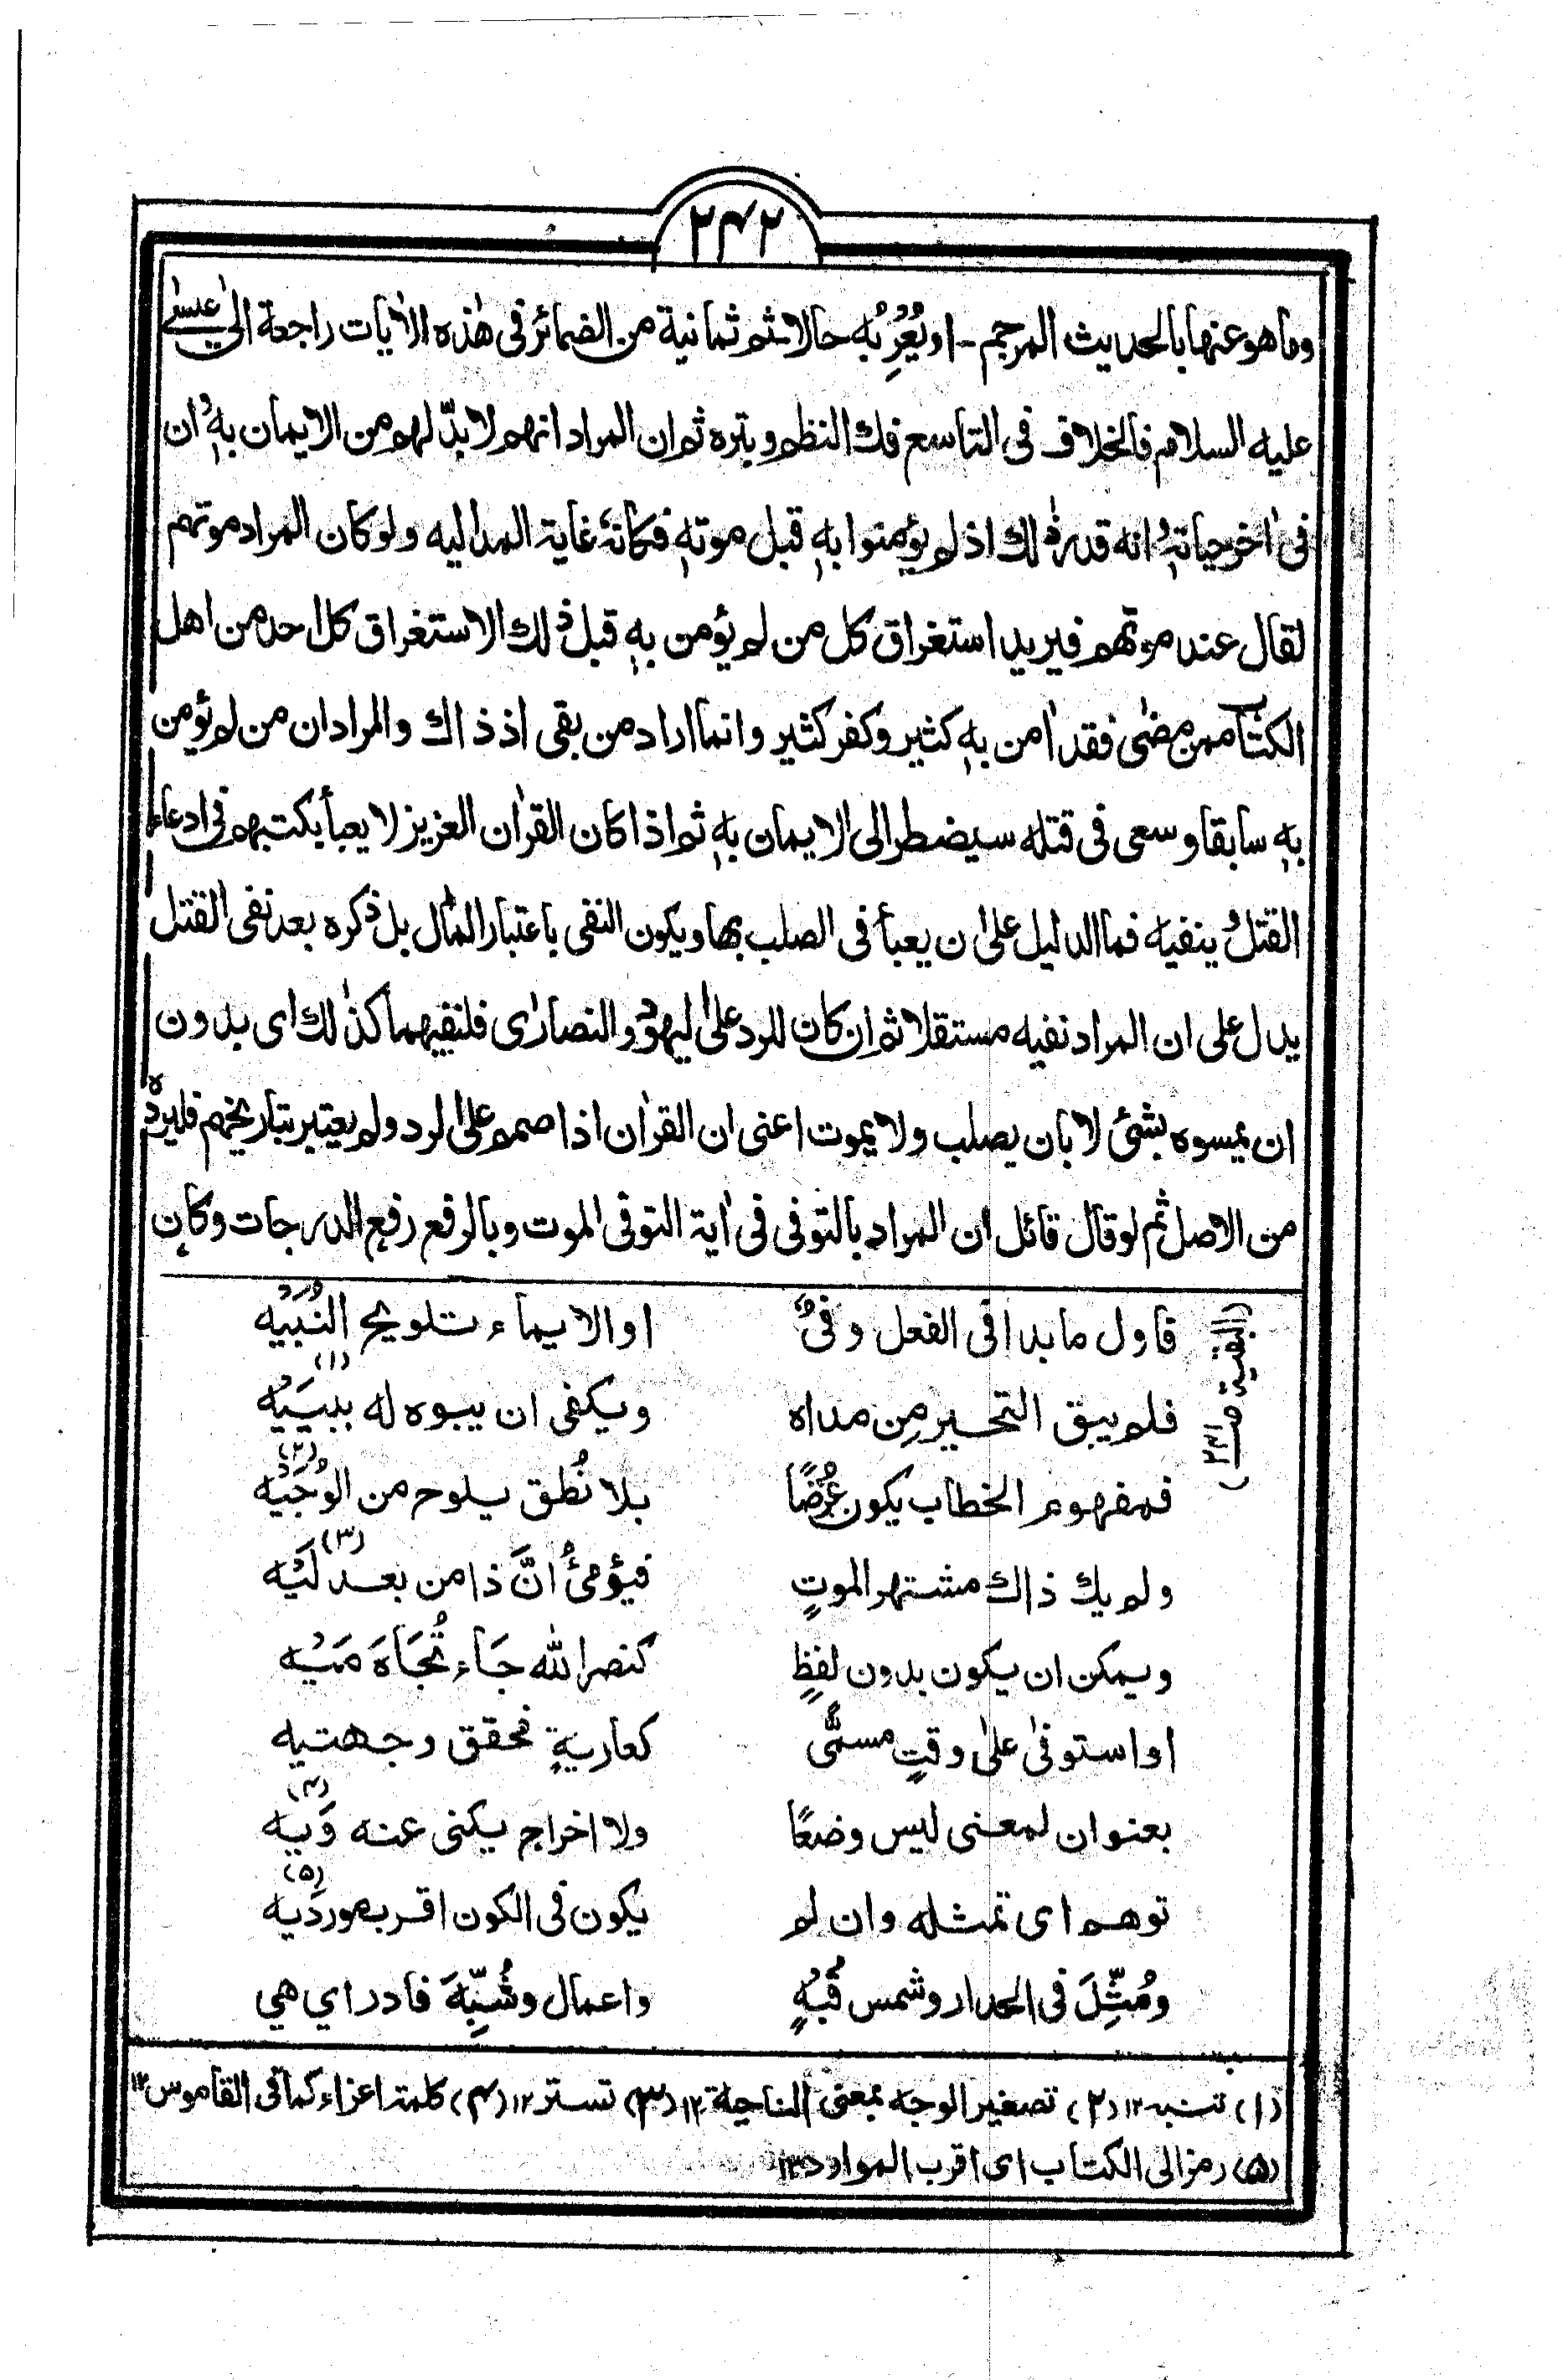 ۲۴۲
وما هو عنها بالحديث المرجم - او يُعْرِبُه حالا ثم ثمانية من الضمائر فى هٰذه الاٰيات راجعة الىٰ عيسىٰ
عليه السلام فالخلاف فى التاسع فك النظم وبتره ثم ان المراد انهم لا بدّ لهم من الايمان بهٖ و ان
فى اٰخر حياتهٖ و انه قدر ذٰلك اذ لم يؤمنوا بهٖ قبل موتهٖ فكانهٗ غاية المدا ليه ولو كان المراد موتهم
لقال عند موتهم فيريد استغراق كل من لم يؤمن بهٖ قبل ذٰلك الاستغراق كل احد من اهل
الكتٰب ممن مضٰى فقد اٰمن بهٖ كثير وكفر كثير وانما اراد من بقى اذ ذاك والمراد ان من لم يؤمن
بهٖ سابقا وسعى فى قتله سيضطر الى الايمان بهٖ ثم اذا كان القراٰن العزيز لا يعبأ بكتبهم فى ادعاء
القتل و ينفيه فما الدليل علىٰ ان يعبأ فى الصلب بها ويكون النفى باعتبار المآل بل ذكره بعد نفى القتل
يدل على ان المراد نفيه مستقلا ثم ان كان للرد على اليهود و النصارٰى فلنفيهما كذٰلك اى بدون
ان يمسوه بشئ لا بان يصلب ولا يموت اعنى ان القراٰن اذا صمم على الرد ولم يعتبر بتاريخهم فليرده
من الاصل ثم لو قال قائل ان المراد بالتوفى فى اٰية التوفى الموت وبالرفع رفع الدرجات وكان
(البقية ص ۲۴۱)
فاول ما بدا فى الفعل وفىٌ او الايماء تلويح النُبَيْه ورد
فلم يبق التحسير مِن مداه ويكفى ان يبوه له ببَيْه (۱)
فمفهوم الخطاب يكون عُرْضًا بلا نُطق يلوح من الوُجَيْه (۲)
ولم يك ذاك مشتهر الموتٍ فيؤمئُ انَّ ذا من بعد لَيْه (۳)
ويمكن ان يكون بدون لفظٍ كنصر الله جَاء تُجَاهَ مَيْه
او استوفىٰ علىٰ وقتٍ مسمًّى كعاريةٍ فحقق وجهتيه
بعنوان لمعنى ليس وضعًا ولا اخراج يكنى عنه وَيه (۴)
توهم اى تمثله وان لم يكون فى الكون اقرب موردَيه (۵)
ومُثِّلَ فى الجدار وشمس قُبْهٍ واعمال وشُبِّهَ فادر اي هي
(۱) تنبه ۱۲ (۲) تصغير الوجه بمعنى الناحية ۱۲ (۳) تستر ۱۲ (۴) كلمة اعزاء كما فى القاموس ۱۲
(۵) رمز الى الكتاب اى اقرب الموارد ۱۲